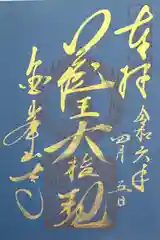 奉拝
令和六年
四月五日
蔵王大権現
金峯山寺